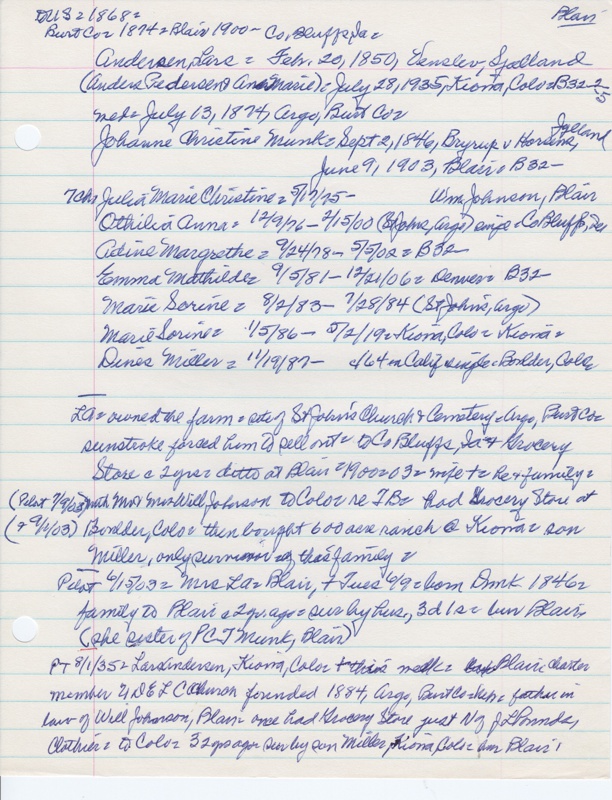 to US = 1868 = Blair
Burt Co = 1874 = Blair 1900 - Co. Bluffs, Ia =
Andersen, Lars = Feb. 20, 1850, Sjelland
(Anders Pedersen & Ana Marie) = July 28, 1935, Kiona, Colo = B32-
med = July 13, 1874, Argo, Burt Co =
Johanne Christine Munk = Sept 2, 1846, Bryrup v Horsens, Jylland
June 9, 1903, Blair = B32-
7 ch = Julia Marie Christine = 5/17/75 - Wm Johnson, Blair
Othilia Anna = 12/9/76 - 2/15/00 (St Johns, Argo) single = Co Bluffs, Ia
Adine Margrethe = 9/24/78 - 5/5/02 = B32-
Emma Mathilde = 9/5/81 - 12/21/06 = Denver = B32-
Marie Sorine = 8/2/83 - 7/28/84 (St John's, Argo)
Marie Sorine = 1/5/86 - 5/2/19 = Kiona, Colo = Kiona =
Dines Miller = 11/19/87 - d/64 in Calif single = Boulder, Colo
LA = owned the farm = site of St John's Church & Cemetery = Argo, Burt Co =
sunstroke forced him to sell out = to Co Bluffs, Ia = Grocery
Store c 2 yrs = ditto at Blair = 1900-03 = wife + = he & family =
(Pilot 7/9/03) with Mr & Mrs Will Johnson to Colo = re TB = had Grocery Store at
(+ 9/1/03) Boulder, Colo = then bought 600 acre ranch @ Kiona = son
Miller, only survivor of this family =
Pilot 6/15/03 = Mrs LA = Blair, + Tues 6/9 = born Dmk 1846 =
family to Blair c 2 yr. ago = sur by hus, 3 d 1 s = bur Blair,
(she sister of PCJ Munk, Blair)
PT 8/1/35 = Lars Andersen, Kiona, Colo + this week = Blair = charter
member of D E L C Church founded 1884, Argo, Burt Co = father in
law of Will Johnson, Blair = once had Grocery Store just N of
Clothier = to Colo = 32 yrs ago sur by son Miller, Kiona, Colo = bur Blair